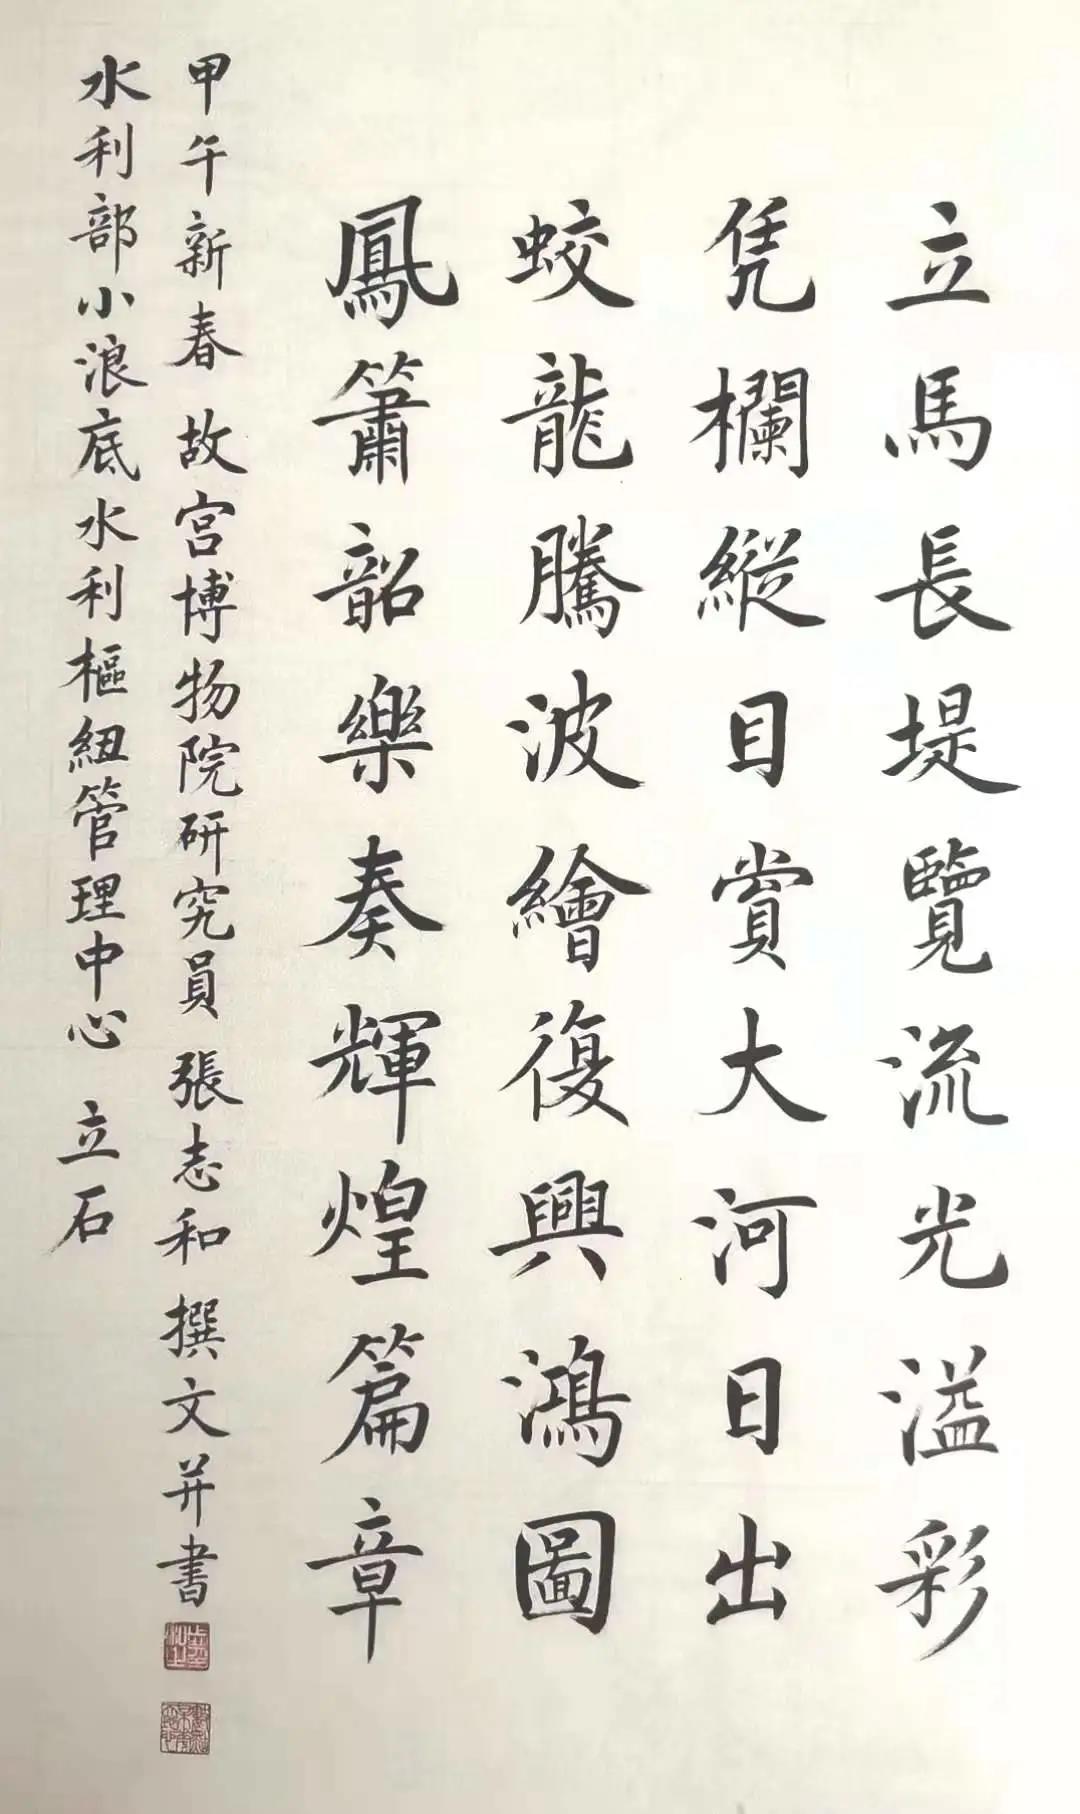 立馬長堤覽流光溢彩
凭欄縱目賞大河日出
蛟龍騰波繪復興鴻圖
鳳簫韶樂奏輝煌篇章
甲午新春 故宮博物院研究員 張志和 撰文并書
水利部小浪底水利樞紐管理中心 立石